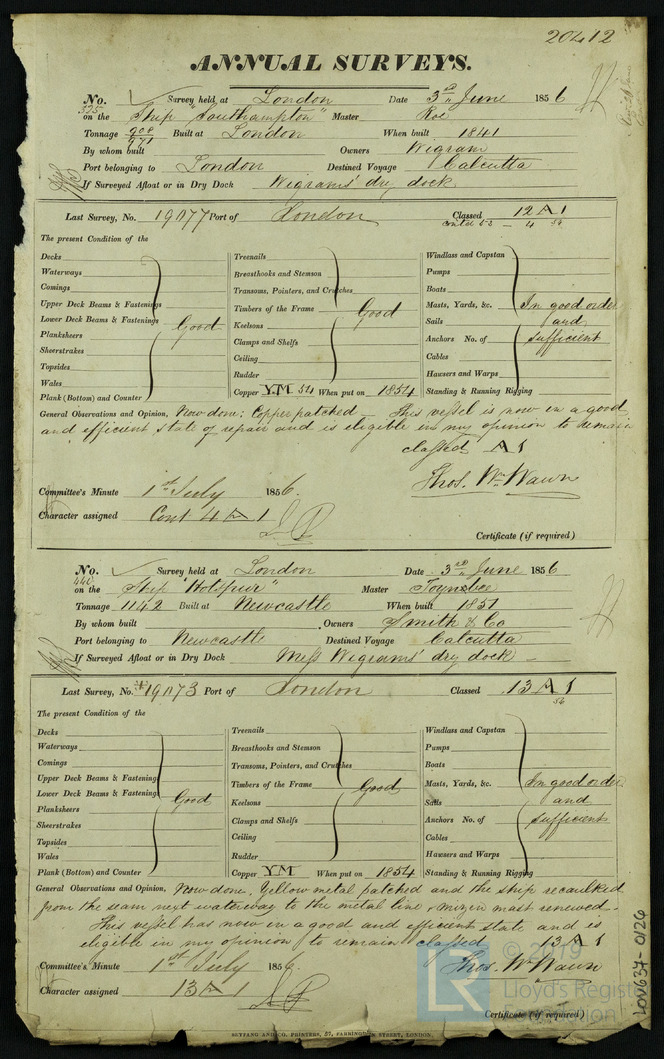 20412
ANNUAL SURVEYS.
No. Survey held at London Date 3rd June 1856
325
on the Ship "Southampton" Master Roe
Tonnage 908/971 Built at London When built 1841
By whom built Owners Wigram
Port belonging to London Destined Voyage Calcutta
If Surveyed Afloat or in Dry Dock Wigrams' dry dock.
Last Survey, No. 19077 Port of London Classed 12 A 1
contd 52 - 4 54
The present Condition of the
Decks
Waterways
Comings
Upper Deck Beams & Fastenings
Lower Deck Beams & Fastenings
Planksheers Good
Sheerstrakes
Topsides
Wales
Plank (Bottom) and Counter
Treenails
Breasthooks and Stemson
Transoms, Pointers, and Crutches
Timbers of the Frame Good
Keelsons
Clamps and Shelfs
Ceiling
Rudder
Copper YM 54 When put on 1854
Windlass and Capstan
Pumps
Boats
Masts, Yards, &c. In good order
Sails and
Anchors No. of sufficient
Cables
Hawsers and Warps
Standing & Running Rigging
General Observations and Opinion, Now done: Copper patched This vessel is now in a good
and efficient state of repair and is eligible in my opinion to remain
classed A 1
Thos. Wm. Wawn
Committee's Minute 1st July 1856.
Character assigned Cont 4 A 1
Certificate (if required)
No. Survey held at London Date 3rd June 1856
440
on the Ship "Hotspur" Master Toynbee
Tonnage 1142 Built at Newcastle When built 1851
By whom built Owners Smith & Co
Port belonging to Newcastle Destined Voyage Calcutta
If Surveyed Afloat or in Dry Dock Mess Wigrams' dry dock
Last Survey, No. 19073 Port of London Classed 13 A 1
56
The present Condition of the
Decks
Waterways
Comings
Upper Deck Beams & Fastenings
Lower Deck Beams & Fastenings
Planksheers Good
Sheerstrakes
Topsides
Wales
Plank (Bottom) and Counter
Treenails
Breasthooks and Stemson
Transoms, Pointers, and Crutches
Timbers of the Frame Good
Keelsons
Clamps and Shelfs
Ceiling
Rudder
Copper YM When put on 1854
Windlass and Capstan
Pumps
Boats
Masts, Yards, &c. In good order
Sails and
Anchors No. of sufficient
Cables
Hawsers and Warps
Standing & Running Rigging
General Observations and Opinion, Now done, Yellow metal patched and the ship recaulked
from the seam next waterway to the metal line, mizen mast renewed.
This vessel has now in a good and efficient state and is
eligible in my opinion to remain classed 13 A 1
Thos. Wm Wawn
Committee's Minute 1st July 1856.
Character assigned 13 A 1
Certificate (if required)
SUTFANG AND CO. PRINTERS, 57, FARRINGDON STREET, LONDON.
LON637-0126
© 2019
LR
Lloyd's Register
Foundation